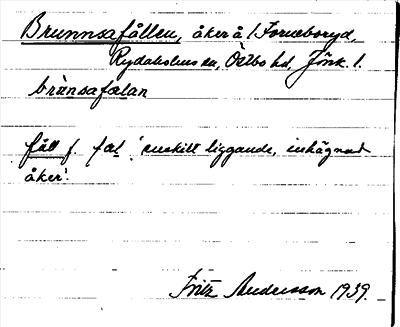 Brunnsafållen, åker å 1 Forneboryd,
Rydaholms sn, Östbo hd, Jönk. l.
brùnsafålan
fåll f. fål 'enskilt liggande, inhägnad
åker'.
Fritz Andersson 1939.